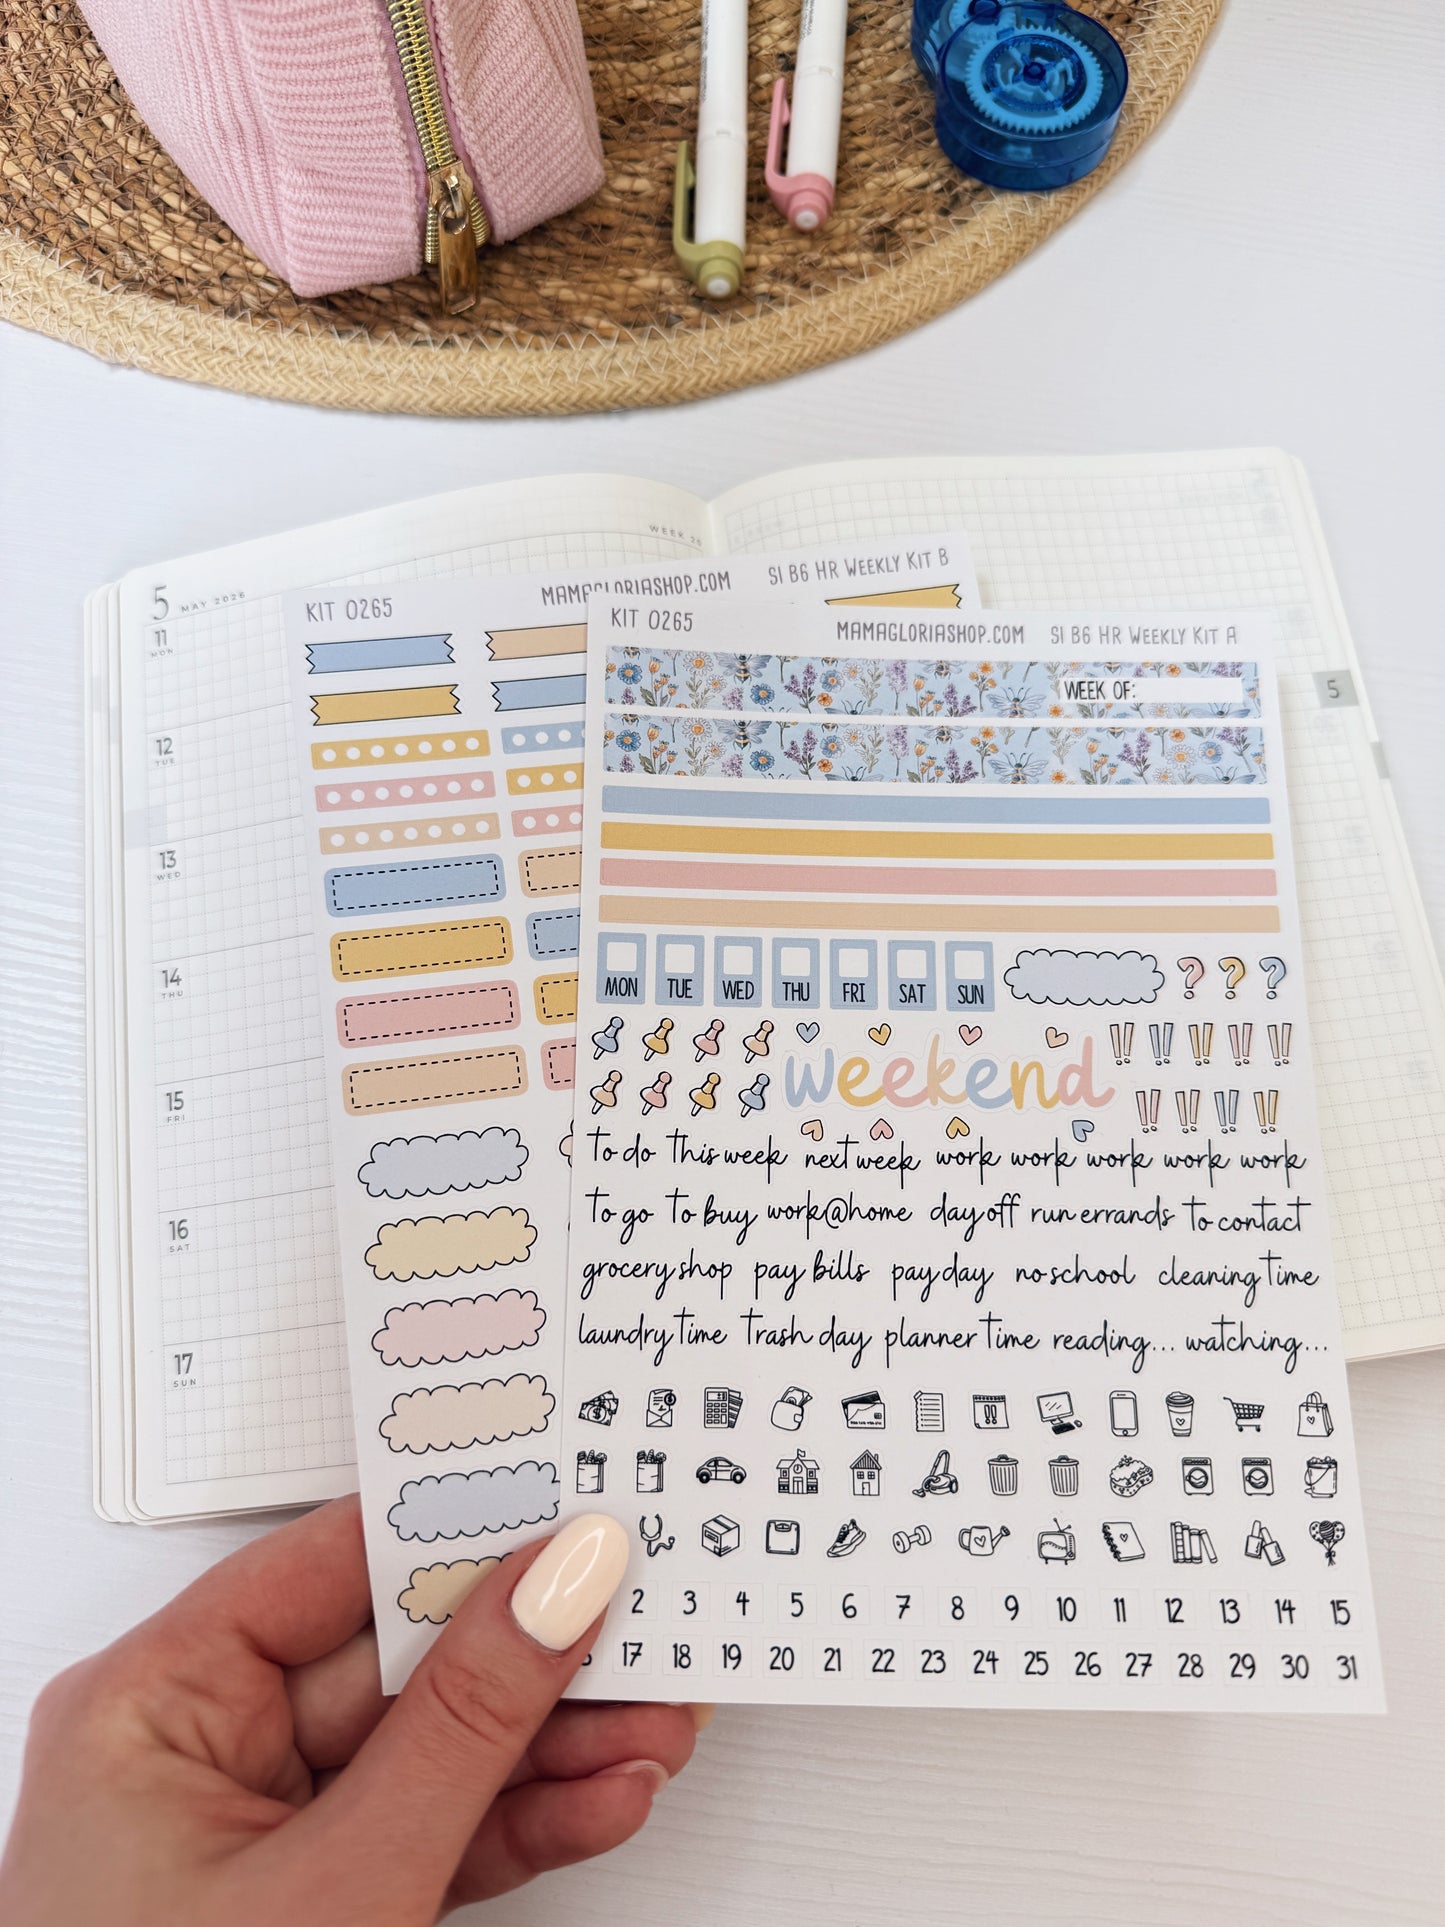 WEEK 20
5 MAY 2026
11
MON
12
TUE
13
WED
14
THU
15
FRI
16
SAT
17
SUN
5
KIT 0265 MAMAGLORIASHOP.COM S1 B6 HR WEEKLY KIT B
KIT 0265 MAMAGLORIASHOP.COM S1 B6 HR WEEKLY KIT A
WEEK OF:
MON TUE WED THU FRI SAT SUN
weekend
to do this week next week work work work work work
to go to buy work@home day off run errands to contact
grocery shop pay bills payday no school cleaning time
laundry time trash day planner time reading... watching...
2 3 4 5 6 7 8 9 10 11 12 13 14 15
17 18 19 20 21 22 23 24 25 26 27 28 29 30 31